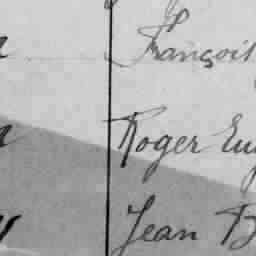 François
Roger Eug
Jean B